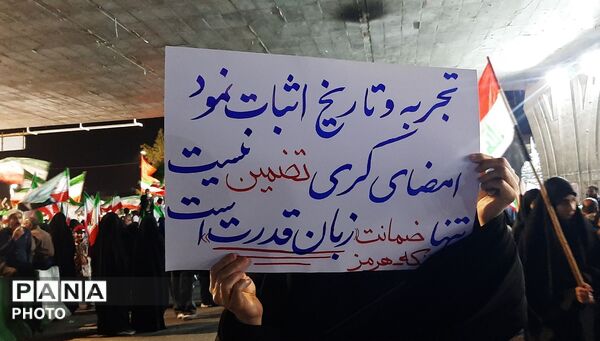 تجربه و تاریخ اثبات نمود
امضای کری تضمین نیست
تنها ضمانت زبان قدرت است
تنگه هرمز
PANA
PHOTO